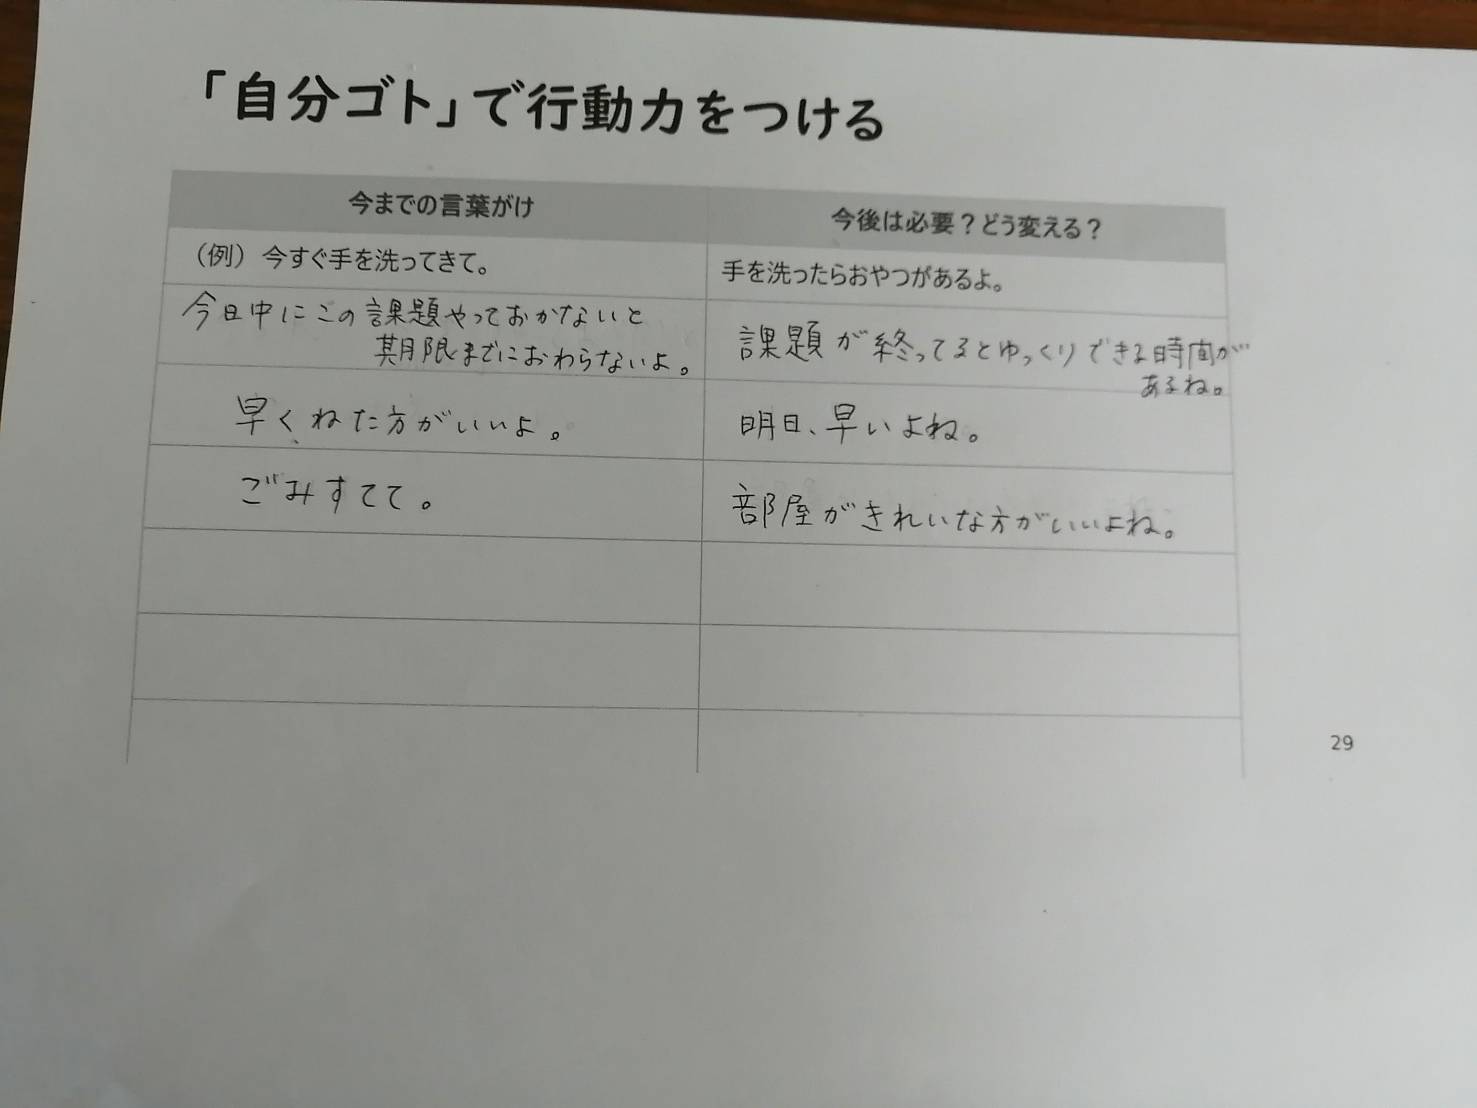 「自分ゴト」で行動力をつける
今までの言葉がけ
今後は必要？どう変える？
（例）今すぐ手を洗ってきて。
手を洗ったらおやつがあるよ。
今日中にこの課題やっておかないと
期限までにおわらないよ。
課題が終ってるとゆっくりできる時間が
あるね。
早くねた方がいいよ。
明日、早いよね。
ごみすてて。
部屋がきれいな方がいいよね。
29